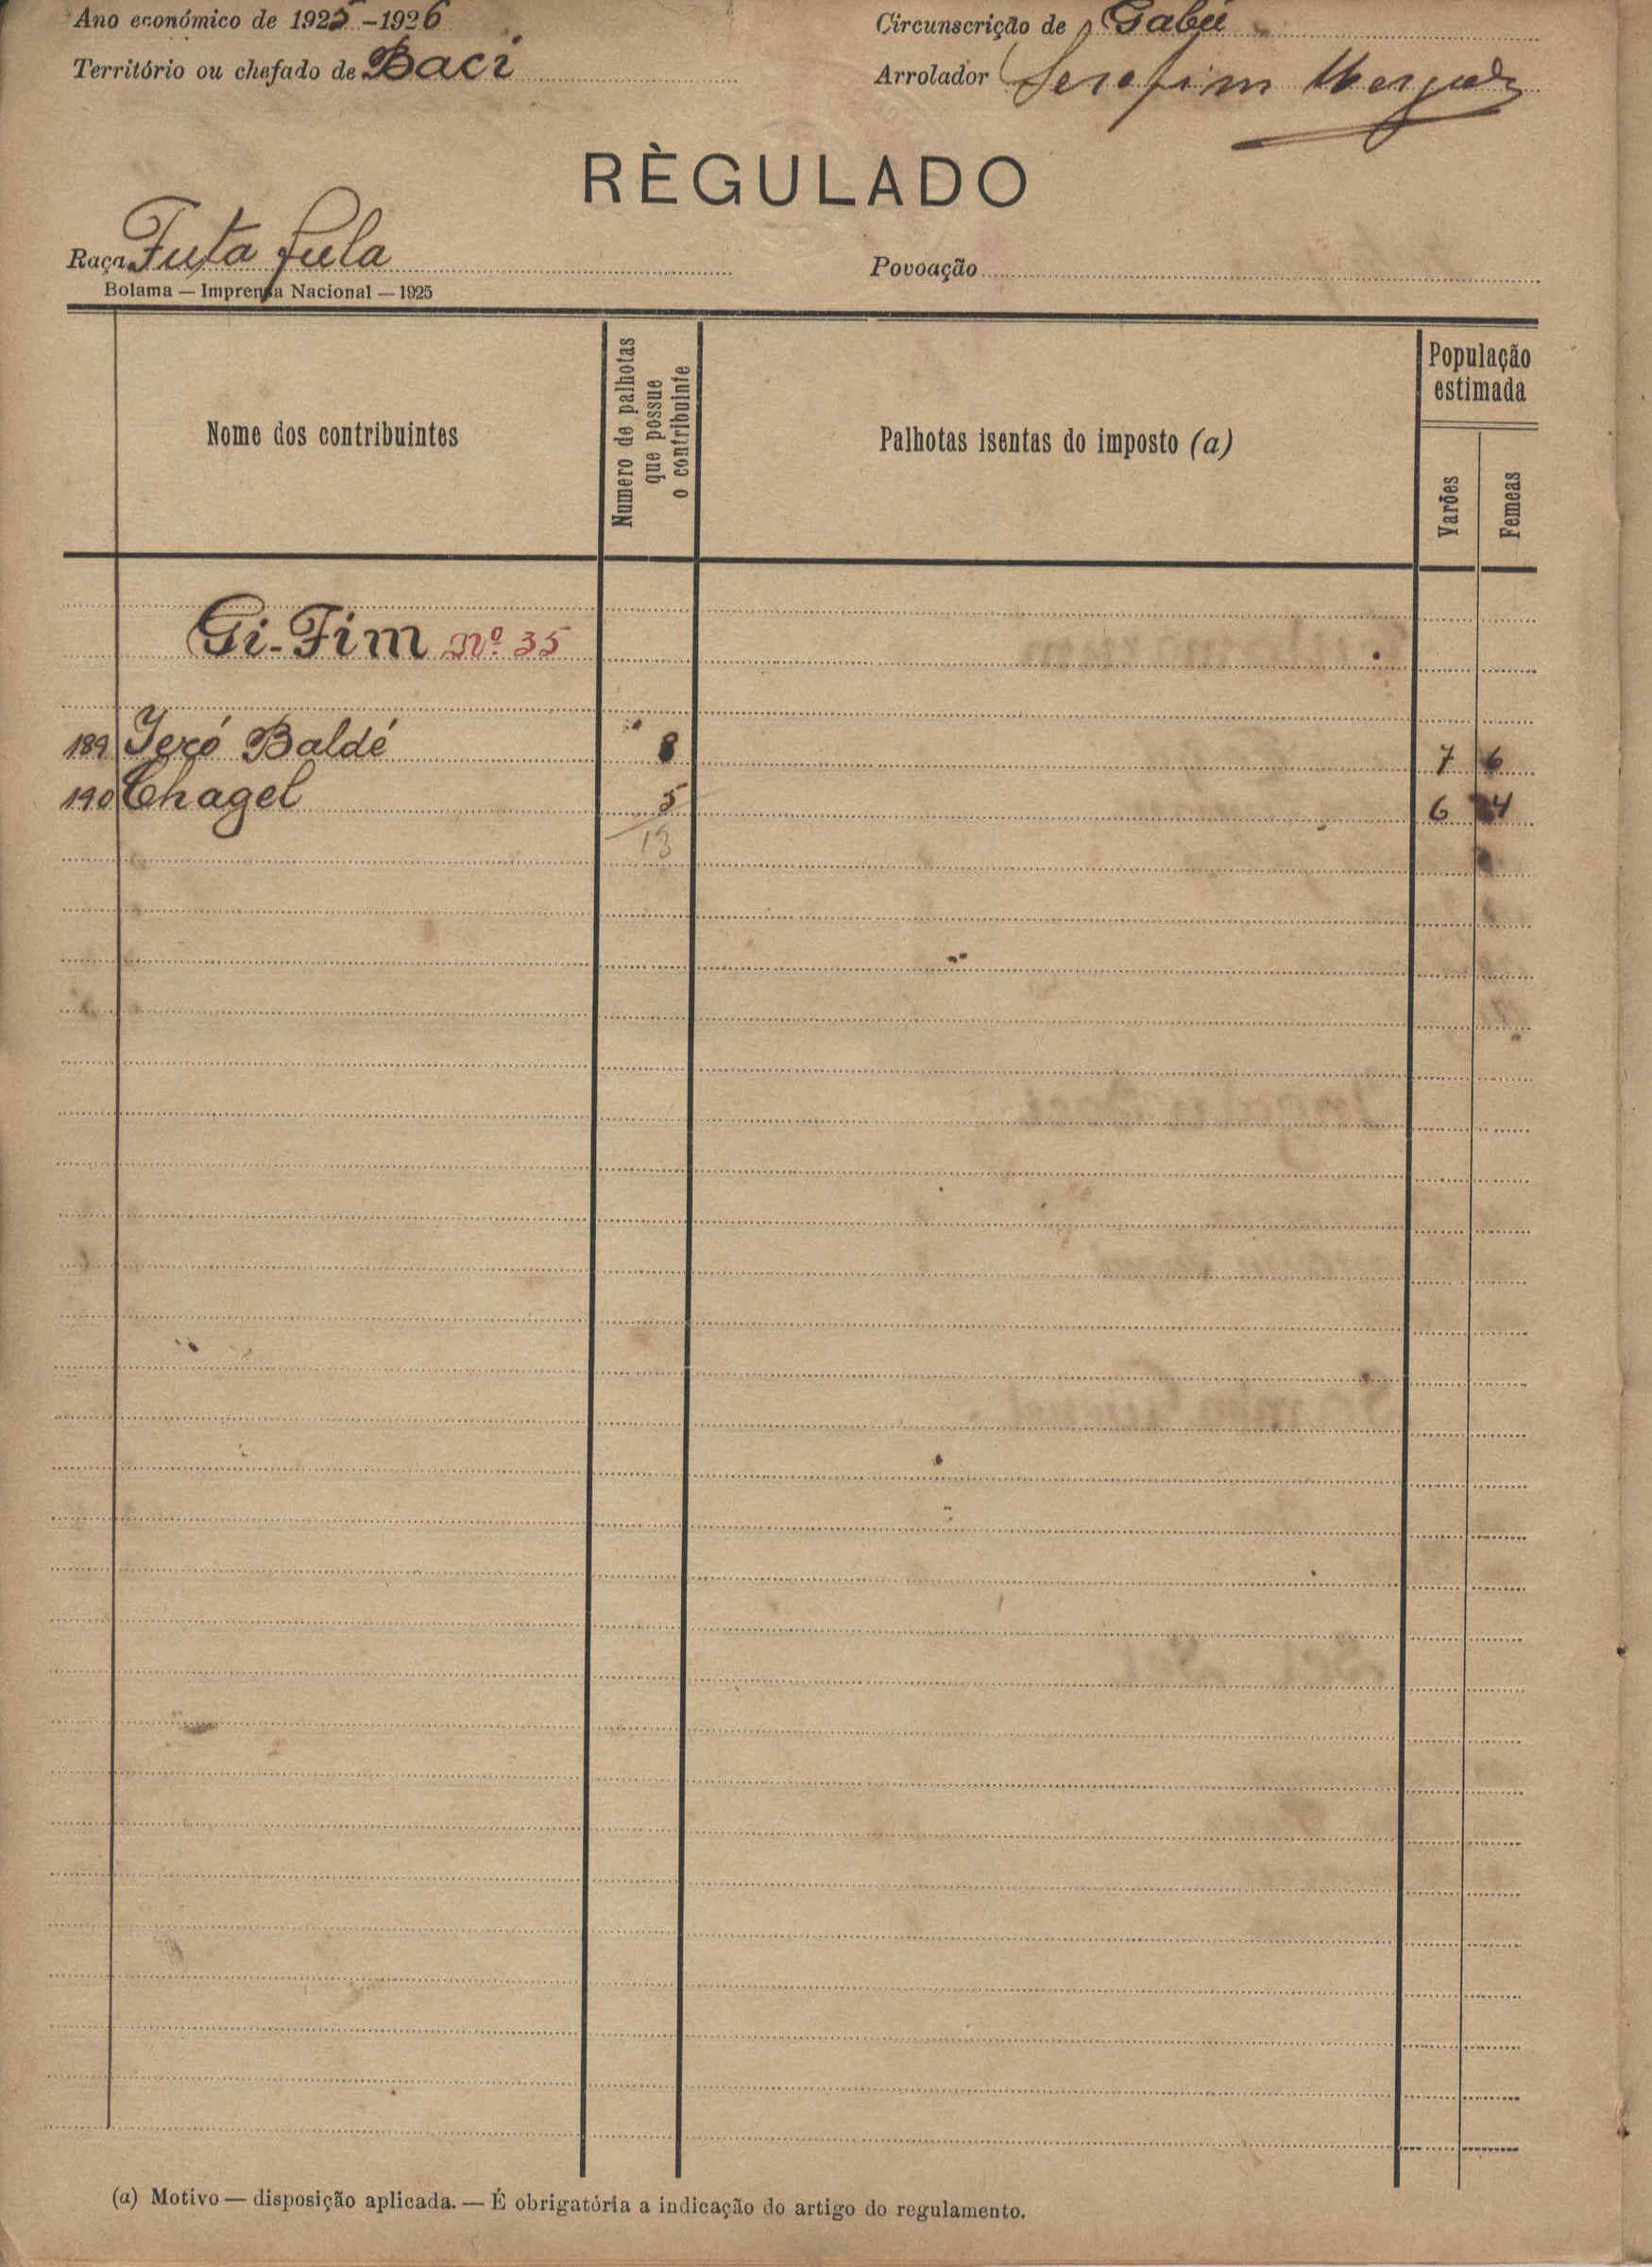 Ano económico de 1925-1926
Circunscrição de Gabú
Território ou chefado de Baci
Arrolador Serafim
RÈGULADO
Raça Futa fula
Povoação
Bolama — Imprensa Nacional — 1925
Nome dos contribuintes
Numero de palhotas
que possue
o contribuinte
Palhotas isentas do imposto (a)
População
estimada
Varões
Femeas
Gi-Fim Nº 35
189 Jeró Baldé 8 7 6
190 Chagel 5 6 4
13
(a) Motivo — disposição aplicada. — É obrigatória a indicação do artigo do regulamento.